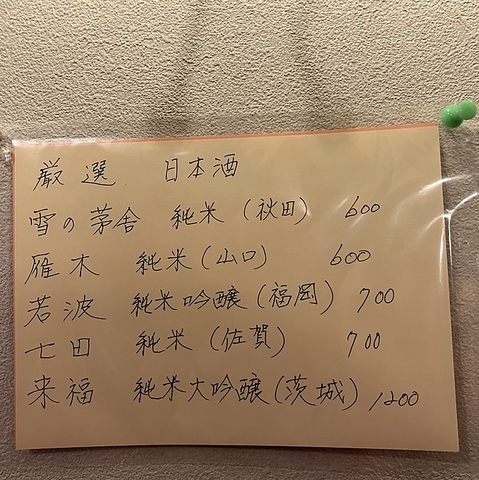 厳選 日本酒
雪の茅舎 純米(秋田) 600
雁木 純米(山口) 600
若波 純米吟醸(福岡) 700
七田 純米(佐賀) 700
来福 純米大吟醸(茨城) 1200